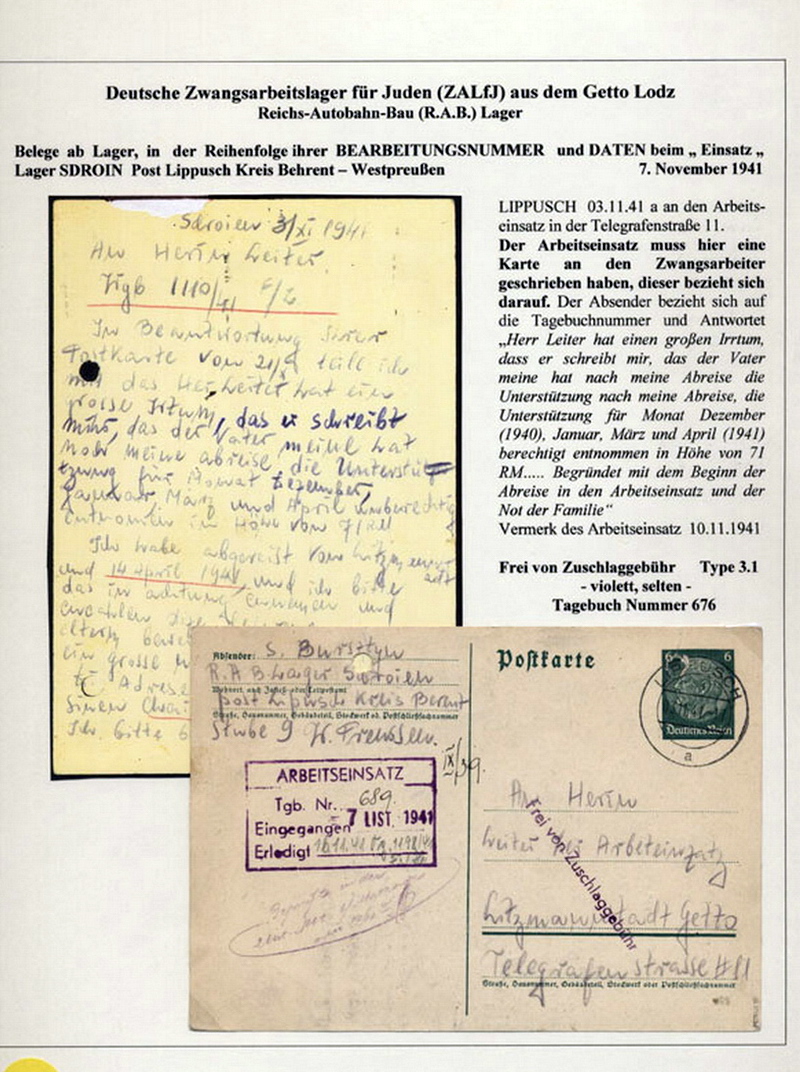 Deutsche Zwangsarbeitslager für Juden (ZALfJ) aus dem Getto Lodz
Reichs-Autobahn-Bau (R.A.B.) Lager
Belege ab Lager, in der Reihenfolge ihrer BEARBEITUNGSNUMMER und DATEN beim „ Einsatz „
Lager SDROIN Post Lippusch Kreis Behrent – Westpreußen 7. November 1941
LIPPUSCH 03.11.41 a an den Arbeits-
einsatz in der Telegrafenstraße 11.
Der Arbeitseinsatz muss hier eine
Karte an den Zwangsarbeiter
geschrieben haben, dieser bezieht sich
darauf. Der Absender bezieht sich auf
die Tagebuchnummer und Antwortet
„Herr Leiter hat einen großen Irrtum,
dass er schreibt mir, das der Vater
meine hat nach meine Abreise die
Unterstützung nach meine Abreise, die
Unterstützung für Monat Dezember
(1940), Januar, März und April (1941)
berechtigt entnommen in Höhe von 71
RM..... Begründet mit dem Beginn der
Abreise in den Arbeitseinsatz und der
Not der Familie“
Vermerk des Arbeitseinsatz 10.11.1941
Frei von Zuschlaggebühr Type 3.1
- violett, selten -
Tagebuch Nummer 676
Sdroien 3/XI 1941
An Herrn Leiter
1110/41
In Beantwortung
Postkarte vom teile ich
mit das Her Leiter hat ein
grosse Irtum, das er schreibt
das der Vater meine hat
noch meine abreise die Unterstüt
tzung für Monat Dezember,
Januar März und April unberechtig
entnomen in Höhe von 71 RM
Ich habe abgereist vom
und 14 April 1941 und ich bitte
das in achtung und
ein grosse
Adrese
Ich bitte
Absender: S. Bursztyn
R.A.B. Lager Sdroien
Wohnort, auch Zustell- oder Leitpostamt
post Lipusch Kreis Berent
Straße, Hausnummer, Gebäudeteil, Stockwerk od. Postschließfachnummer
Stube 9
Postkarte
6 6
Deutsches Reich
LIPPUSCH
a
ARBEITSEINSATZ
Tgb. Nr. 689
Eingegangen 7 LIST. 1941
Erledigt
An Herrn
Leiter bei Arbeteinzatz
Frei von Zuschlaggebühr
Litzmannstadt Getto
Telegrafenstrasse #11
Straße, Hausnummer, Gebäudeteil, Stockwerk oder Postschließfachnummer